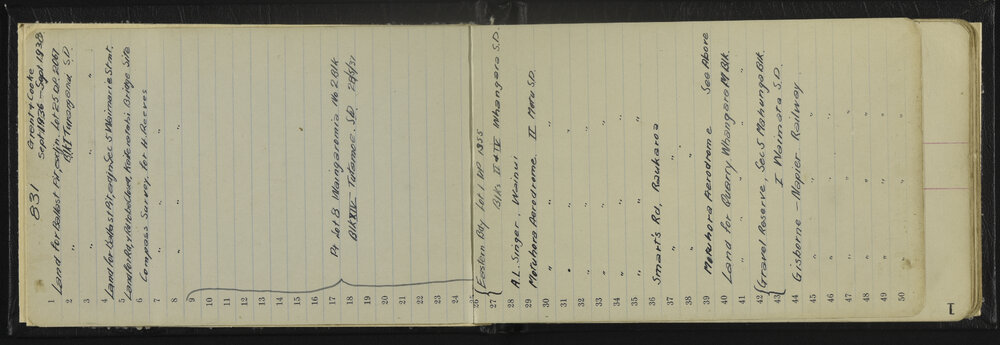 831 Grant & Cooke
Sept 1936 - Sept 1938
1 Land for Ballast Pit, Lot 25 DP 2067
2 " Blk I Turanganui S.D.
3 " "
4 Land for Ballast Pit, Sec 5 Waimarie Stmt.
5 Bridge Site
6 Compass Survey for H. Reeves
7 " "
8 " "
9
10
11
12
13
14
15
16
17 Pt Lot B Waingaromia No 2 Blk
18 Blk XIV Tutamoe S.D.
19
20
21
22
23
24
25
26 Eastern Bdy Lot 1 DP 1355
27 Blks II & IV Whangara S.D.
28 A.L. Singer, Wainui
29 Motuhora Aerodrome II Motu S.D.
30 " "
31 " "
32 " "
33 " "
34 " "
35 " "
36 Smart's Rd, Raukaroa
37 " "
38 " "
39 Motuhora Aerodrome See Above
40 Land for Quarry, Whangara Blk.
41 " "
42 Gravel Reserve, Sec 5 Mahunga Blk
43 I Waimata S.D.
44 Gisborne - Napier Railway
45 " " "
46 " " "
47 " " "
48 " " "
49 " " "
50 " " "
1